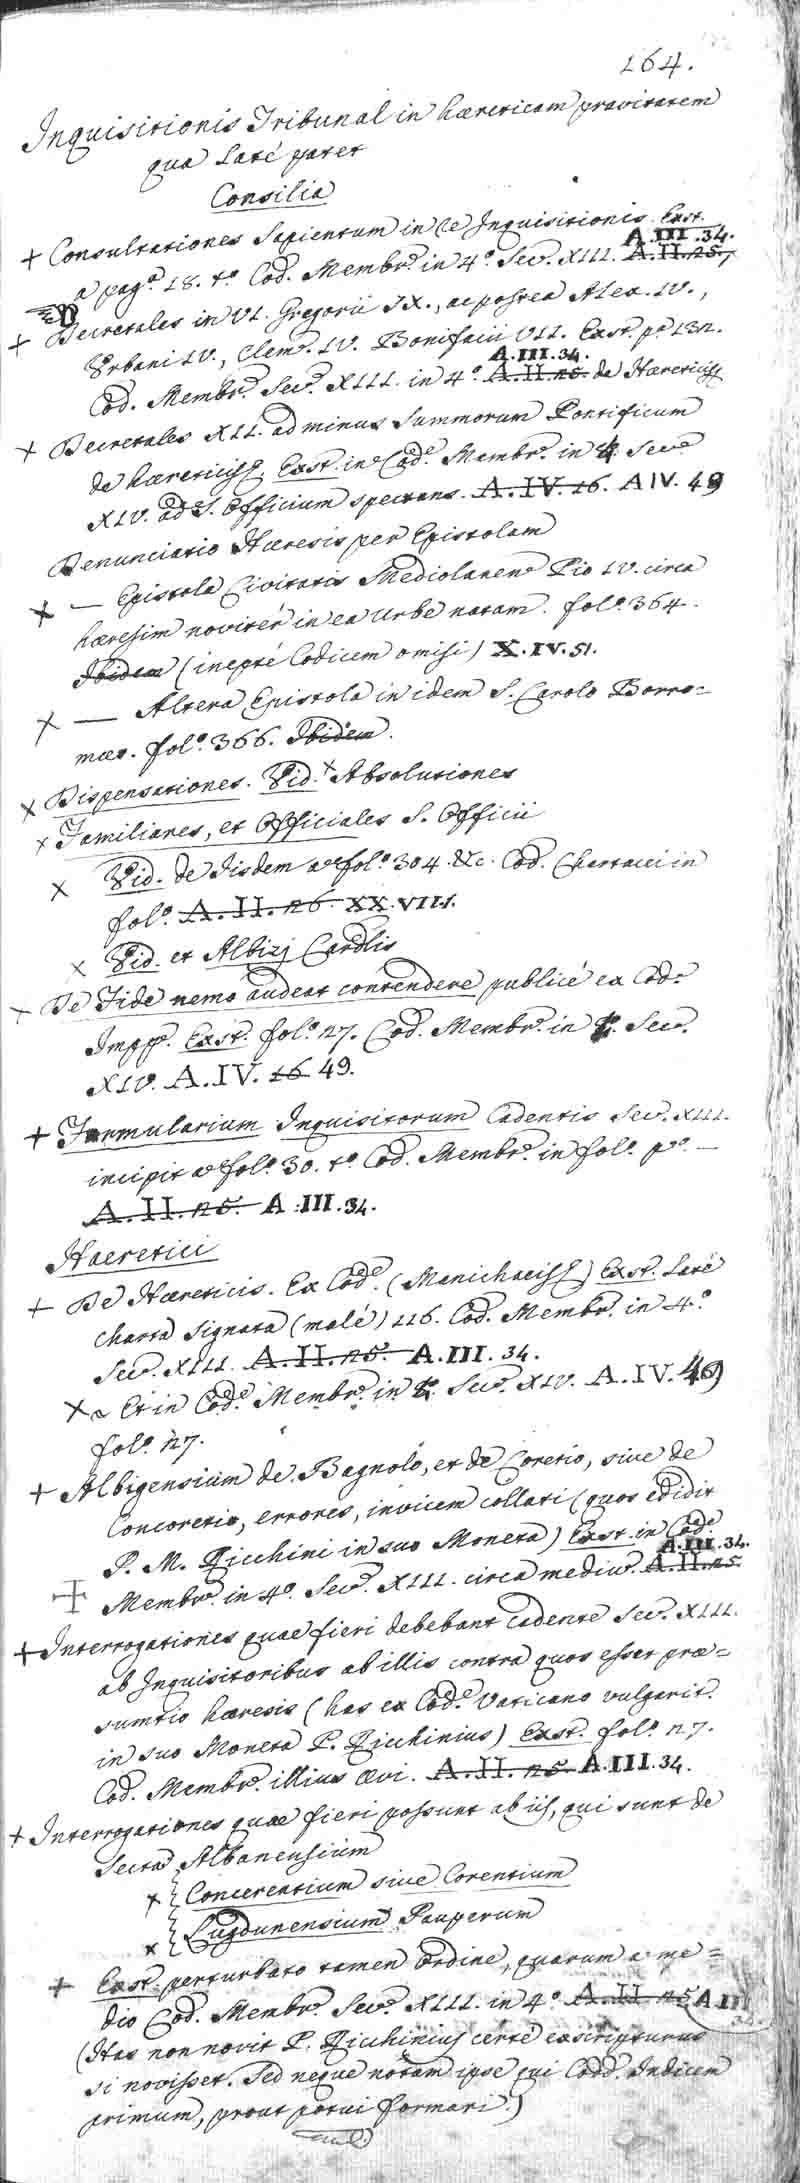 164.
Inquisitionis Tribunal in haereticam pravitatem
qua Laté patet
Consilia
+ Consultationes Sapientum in re Inquisitionis. Exst.
A.III.34.
a pag.ª 18. t.º Cod. Membr.º in 4.º Sec.º XIII. A.II.25.
+ Decretales in VI. Gregorii IX., ac postea Alex. IV.,
Urbani IV., Clem. IV. Bonifacii VII. Exst. p.ª 132.
A.III.34.
Cod. Membr.º Sec.º XIII. in 4.º A.II.25. de Haereticis
+ Decretales XII. ad minus Summorum Pontificum
de haereticis. Exst. in Cod.e Membr.º in 4. Sec.º
XIV. ad S. Officium spectans. A.IV.16. A IV. 49
Denunciatio Haeresis per Epistolam
x — Epistola Civitatis Mediolanen.º Pio IV. circa
haeresim noviter in ea Urbe natam. fol.º 364.
Ibidem (inepté Codicem omisi) X.IV.51.
x — Altera Epistola in idem S. Carolo Borro=
maeo. fol.º 366. Ibidem.
x Dispensationes. Vid. x Absolutiones
x Familiares, et Officiales S. Officii
x Vid. de Iisdem a fol.º 304. &c. Cod. Chartacei in
fol.º A.II.26. XX.VIII.
x Vid. et Albizj Cardlis
x De Fide nemo audeat contendere publicé ex Cod.e
Impp.º Exst. fol.º 27. Cod. Membr.º in 4. Sec.º
XIV. A.IV. 16 49.
+ Formularium Inquisitorum Cadentis Sec.º XIII.
incipit a fol.º 30. t.º Cod. Membr.º in fol.º p.º —
A.II.25. A.III.34.
Haeretici
+ De Haereticis. Ex Cod.e (Manichaeis) Exst. Laté
charta signata (malé) 116. Cod. Membr.º in 4.º
Sec.º XIII. A.II.25. A.III.34.
x ~ Et in Cod.e Membr.º in 4. Sec.º XIV. A.IV. 49
fol.º 27.
+ Albigensium de Bagnolo, et de Coretio, sive de
Concoretio, errores, invicem collati (quos edidit
P. M. Ricchini in suo Moneta) Exst. in Cod.e
A.III.34.
+ Membr.º in 4.º Sec.º XIII. circa mediu.º A.II.25.
+ Interrogationes quae fieri debebant cadente Sec.º XIII.
ab Inquisitoribus ab illis contra quos esset prae=
sumtio haeresis (has ex Cod.e Vaticano vulgarit.
in suo Moneta P. Ricchinius) Exst. fol.º 27.
Cod. Membr.º illius aevi. A.II.25. A.III.34.
+ Interrogationes quae fieri possunt ab iis, qui sunt de
Secta Albanensium
x Concorentium sive Corentium
x Lugdunensium Pauperum
+ Exst. perturbato tamen Ordine, quarum a me=
dio Cod. Membr.º Sec.º XIII. in 4.º A.II.25 A.III
34.
(Has non novit P. Ricchinius certé exscripturus
si novisset. Sed neque notam ipse qui Codd. Indicem
primum, prout potui formari.)